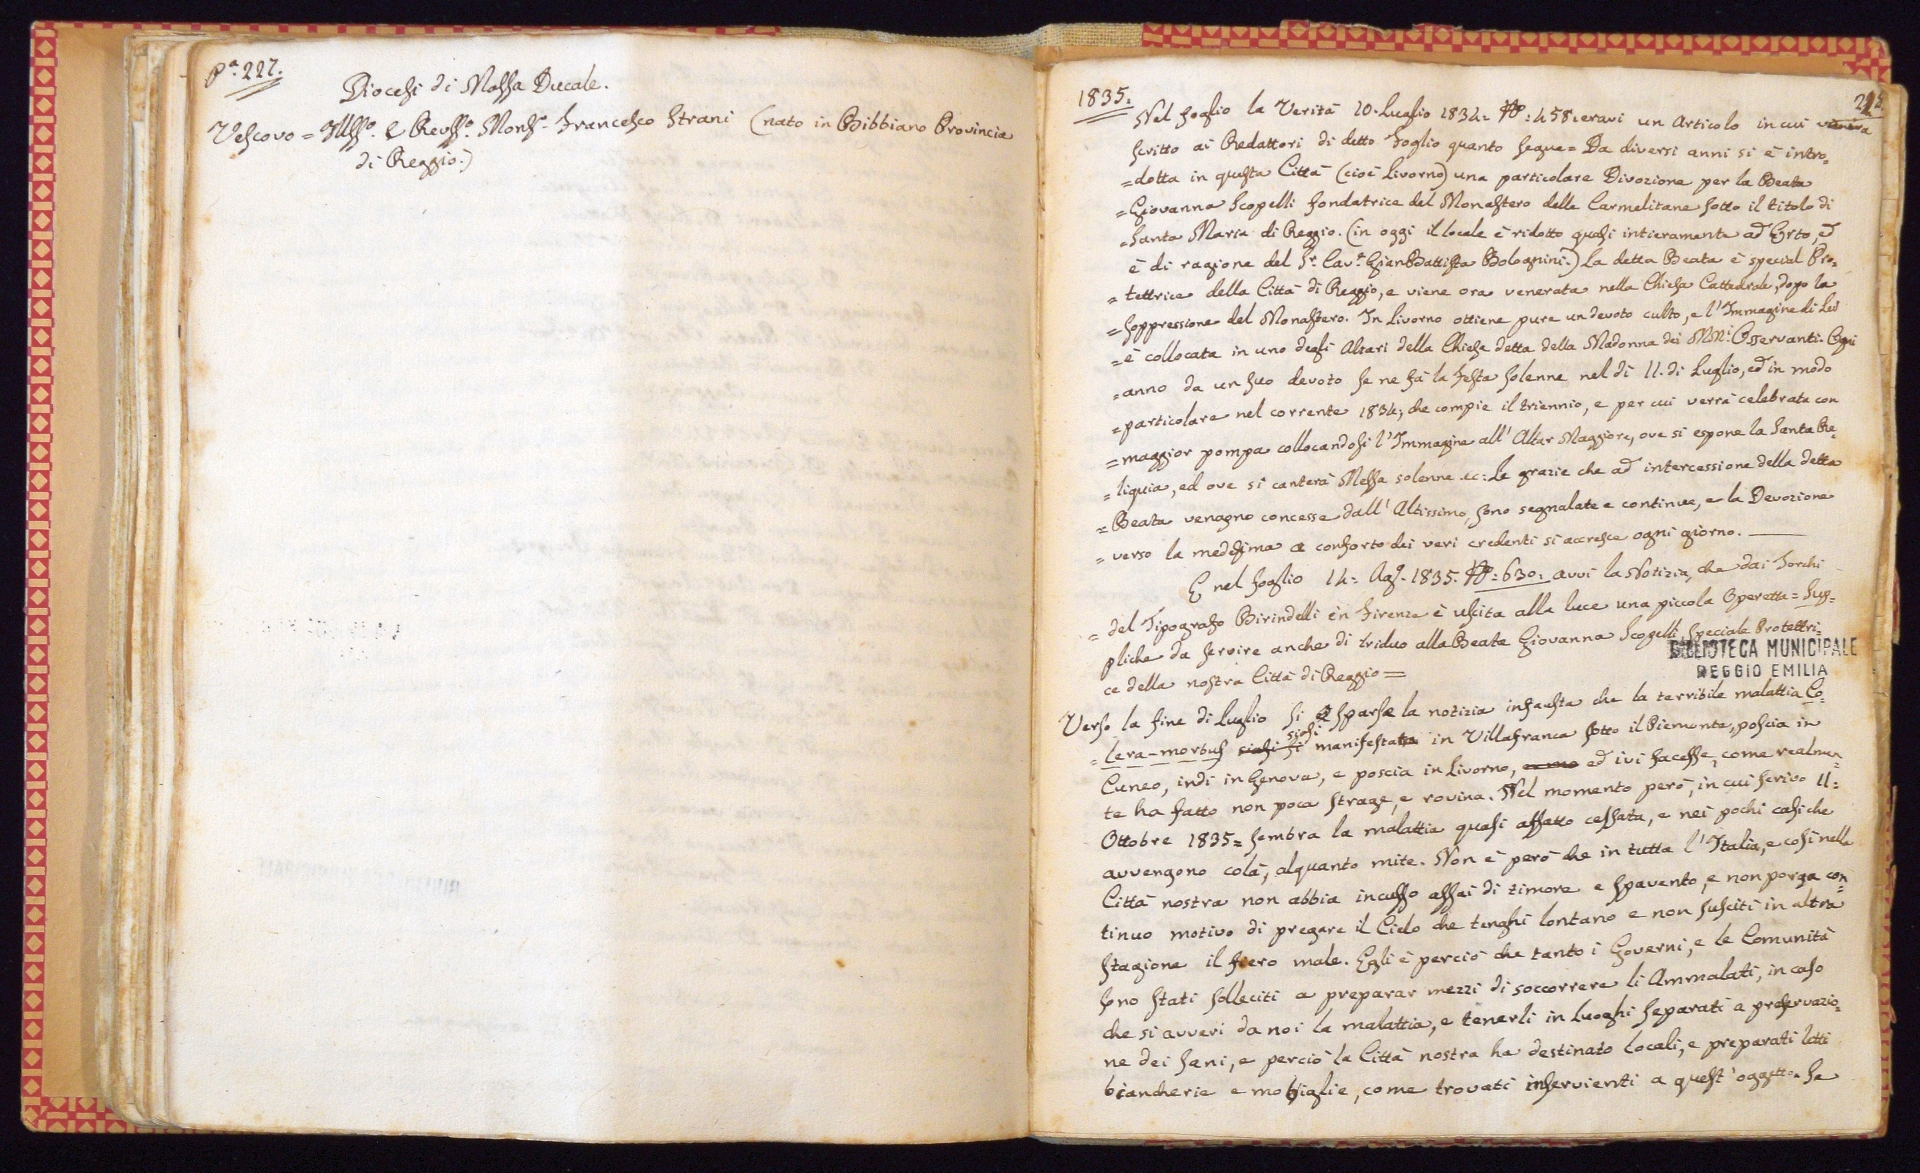 Pª. 227.
Diocesi di Massa Ducale.
Vescovo = Illsso. e Revsso. Monsr. Francesco Strani (nato in Bibbiano Provincia
di Reggio.)
1835.
Nel foglio la Verità 10. Luglio 1834. N°. 458. eravi un Articolo in cui veniva
scritto ai Redattori di detto foglio quanto segue = Da diversi anni si è intro=
= dotta in questa Città (cioè Livorno) una particolare Divozione per la Beata
= Giovanna Scopelli fondatrice del Monastero delle Carmelitane sotto il titolo di
= Santa Maria di Reggio. (in oggi il locale è ridotto quasi intieramente ad Orto, ed
è di ragione del Sr. Cavre. GianBattista Bolognini.) La detta Beata è special Pro=
= tettrice della Città di Reggio, e viene ora venerata nella Chiesa Cattedrale, dopo la
= soppressione del Monastero. In Livorno ottiene pure un devoto culto, e l'Immagine di Lei
= è collocata in uno degli Altari della Chiesa detta della Madonna dei MM. Osservanti. Ogni
= anno da un suo devoto se ne fà la Festa solenne nel dì 11. di Luglio, ed in modo
= particolare nel corrente 1834, che compie il triennio, e per cui verrà celebrata con
= maggior pompa collocandosi l'Immagine all'Altar Maggiore, ove si espone la Santa Re=
= liquia, ed ove si canterà Messa solenne ec: Le grazie che ad intercessione della detta
= Beata vengano concesse dall'Altissimo, sono segnalate e continue, e la Devozione
= verso la medesima a conforto dei veri credenti si accresce ogni giorno.
E nel foglio 14. Agt. 1835. N°: 630: avvi la Notizia, che dai Torchi
= del Tipografo Birindelli in Firenze è uscita alla luce una piccola Operetta = Sup=
pliche da servire anche di triduo alla Beata Giovanna Scopelli speciale Protettri=
ce della nostra Città di Reggio =
BIBLIOTECA MUNICIPALE
REGGIO EMILIA
Verso la fine di Luglio si sparse la notizia infausta che la terribile malattia Co=
= lera-morbus siasi manifestata in Villafranca sotto il Piemonte, poscia in
Cuneo, indi in Genova, e poscia in Livorno, ed ivi facesse, come realmen=
te ha fatto non poca strage, e rovina. Nel momento però, in cui scrivo 11=
Ottobre 1835= sembra la malattia quasi affatto cessata, e nei pochi casi che
avvengono colà, alquanto mite. Non è però che in tutta l'Italia, e così nella
Città nostra non abbia incusso assai di timore e spavento, e non porga con=
tinuo motivo di pregare il Cielo che tenghi lontano e non susciti in altra
stagione il fiero male. Egli è perciò che tanto i Governi, e le Comunità
sono stati solleciti a preparar mezzi di soccorrere li Ammalati, in caso
che si avveri da noi la malattia, e tenerli in luoghi separati a preservazio=
ne dei sani, e perciò la Città nostra ha destinato locali, e preparati letti
biancherie e mobiglie, come trovati inservienti a quest'oggetto. Se